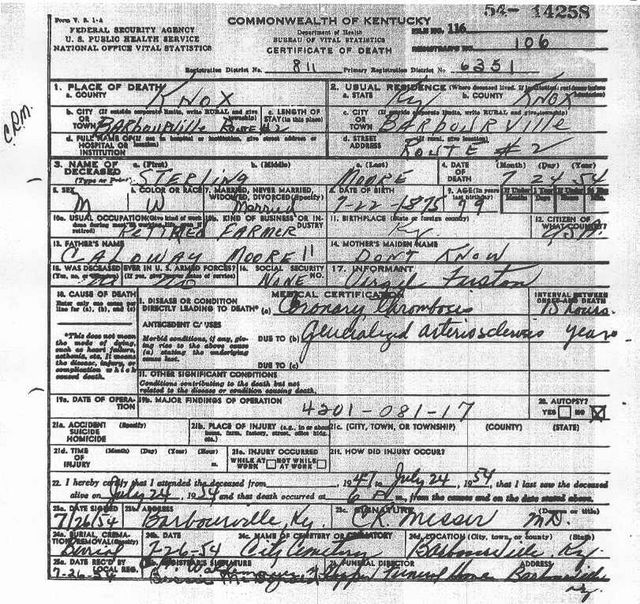 54- 14258
Form V. S. 1-A
FEDERAL SECURITY AGENCY
U. S. PUBLIC HEALTH SERVICE
NATIONAL OFFICE VITAL STATISTICS
COMMONWEALTH OF KENTUCKY
Department of Health
BUREAU OF VITAL STATISTICS
CERTIFICATE OF DEATH
FILE NO. 116
REGISTRAR'S NO. 106
Registration District No. 811 Primary Registration District No. 6351
C.R.M.
1. PLACE OF DEATH
a. COUNTY KNOX
2. USUAL RESIDENCE (Where deceased lived.
a. STATE Ky b. COUNTY KNOX
b. CITY (If outside corporate limits, write RURAL and give township)
OR TOWN BARbourville Route #2
c. LENGTH OF STAY (in this place)
c. CITY (If outside corporate limits, write RURAL and give township)
OR TOWN BARBOURVille
d. FULL NAME OF (If not in hospital or institution, give street address or location)
HOSPITAL OR INSTITUTION
d. STREET ADDRESS (If rural, give location)
Route #2
3. NAME OF DECEASED
(Type or Print)
a. (First) STERLING
b. (Middle)
c. (Last) MOORE
4. DATE OF DEATH (Month) (Day) (Year)
7 24 54
5. SEX M
6. COLOR OR RACE W
7. MARRIED, NEVER MARRIED, WIDOWED, DIVORCED (Specify)
Married
8. DATE OF BIRTH
7-22-1875
9. AGE (In years last birthday) 79
10a. USUAL OCCUPATION (Give kind of work done during most of working life, even if retired)
Retired Farmer
10b. KIND OF BUSINESS OR INDUSTRY
11. BIRTHPLACE (State or foreign country)
Ky.
12. CITIZEN OF WHAT COUNTRY?
USA.
13. FATHER'S NAME
CALOWAY MOORE
14. MOTHER'S MAIDEN NAME
DON'T KNOW
15. WAS DECEASED EVER IN U. S. ARMED FORCES?
(Yes, no, or unknown) (If yes, give war or dates of service)
no
16. SOCIAL SECURITY NO.
NONE
17. INFORMANT
Virgil Fuston
18. CAUSE OF DEATH
Enter only one cause per line for (a), (b), and (c)
*This does not mean the mode of dying, such as heart failure, asthenia, etc. It means the disease, injury, or complication which caused death.
MEDICAL CERTIFICATION
INTERVAL BETWEEN ONSET AND DEATH
I. DISEASE OR CONDITION
DIRECTLY LEADING TO DEATH* (a) Coronary Thrombosis 15 hours
ANTECEDENT CAUSES
Morbid conditions, if any, giving rise to the above cause (a) stating the underlying cause last.
DUE TO (b) generalized arteriosclerosis years
DUE TO (c)
II. OTHER SIGNIFICANT CONDITIONS
Conditions contributing to the death but not related to the disease or condition causing death.
19a. DATE OF OPERATION
19b. MAJOR FINDINGS OF OPERATION
4201-081-17
20. AUTOPSY?
YES NO X
21a. ACCIDENT SUICIDE HOMICIDE (Specify)
21b. PLACE OF INJURY (e.g., in or about home, farm, factory, street, office bldg., etc.)
21c. (CITY, TOWN, OR TOWNSHIP) (COUNTY) (STATE)
21d. TIME OF INJURY (Month) (Day) (Year) (Hour) m.
21e. INJURY OCCURRED
WHILE AT WORK NOT WHILE AT WORK
21f. HOW DID INJURY OCCUR?
22. I hereby certify that I attended the deceased from 1947 to July 24, 1954, that I last saw the deceased
alive on July 24, 1954 and that death occurred at 6 P m., from the causes and on the date stated above.
23a. DATE SIGNED 7/26/54
23b. ADDRESS Barbourville, Ky.
23c. SIGNATURE (Degree or title)
CR. Messer M.D.
24a. BURIAL, CREMATION, REMOVAL (Specify)
Burial
24b. DATE
7-26-54
24c. NAME OF CEMETERY OR CREMATORY
City Cemetery
24d. LOCATION (City, town, or county) (State)
Barbourville, Ky.
25a. DATE REC'D BY LOCAL REG.
7-26-54
REGISTRAR'S SIGNATURE
FUNERAL DIRECTOR ADDRESS
Funeral Home Barbourville Ky.